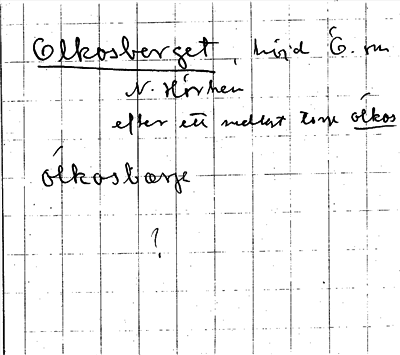 Olkosberget, höjd Ö. om
N. Hörken
efter ett nedlagt torp ólkos
ólkosbærje
?